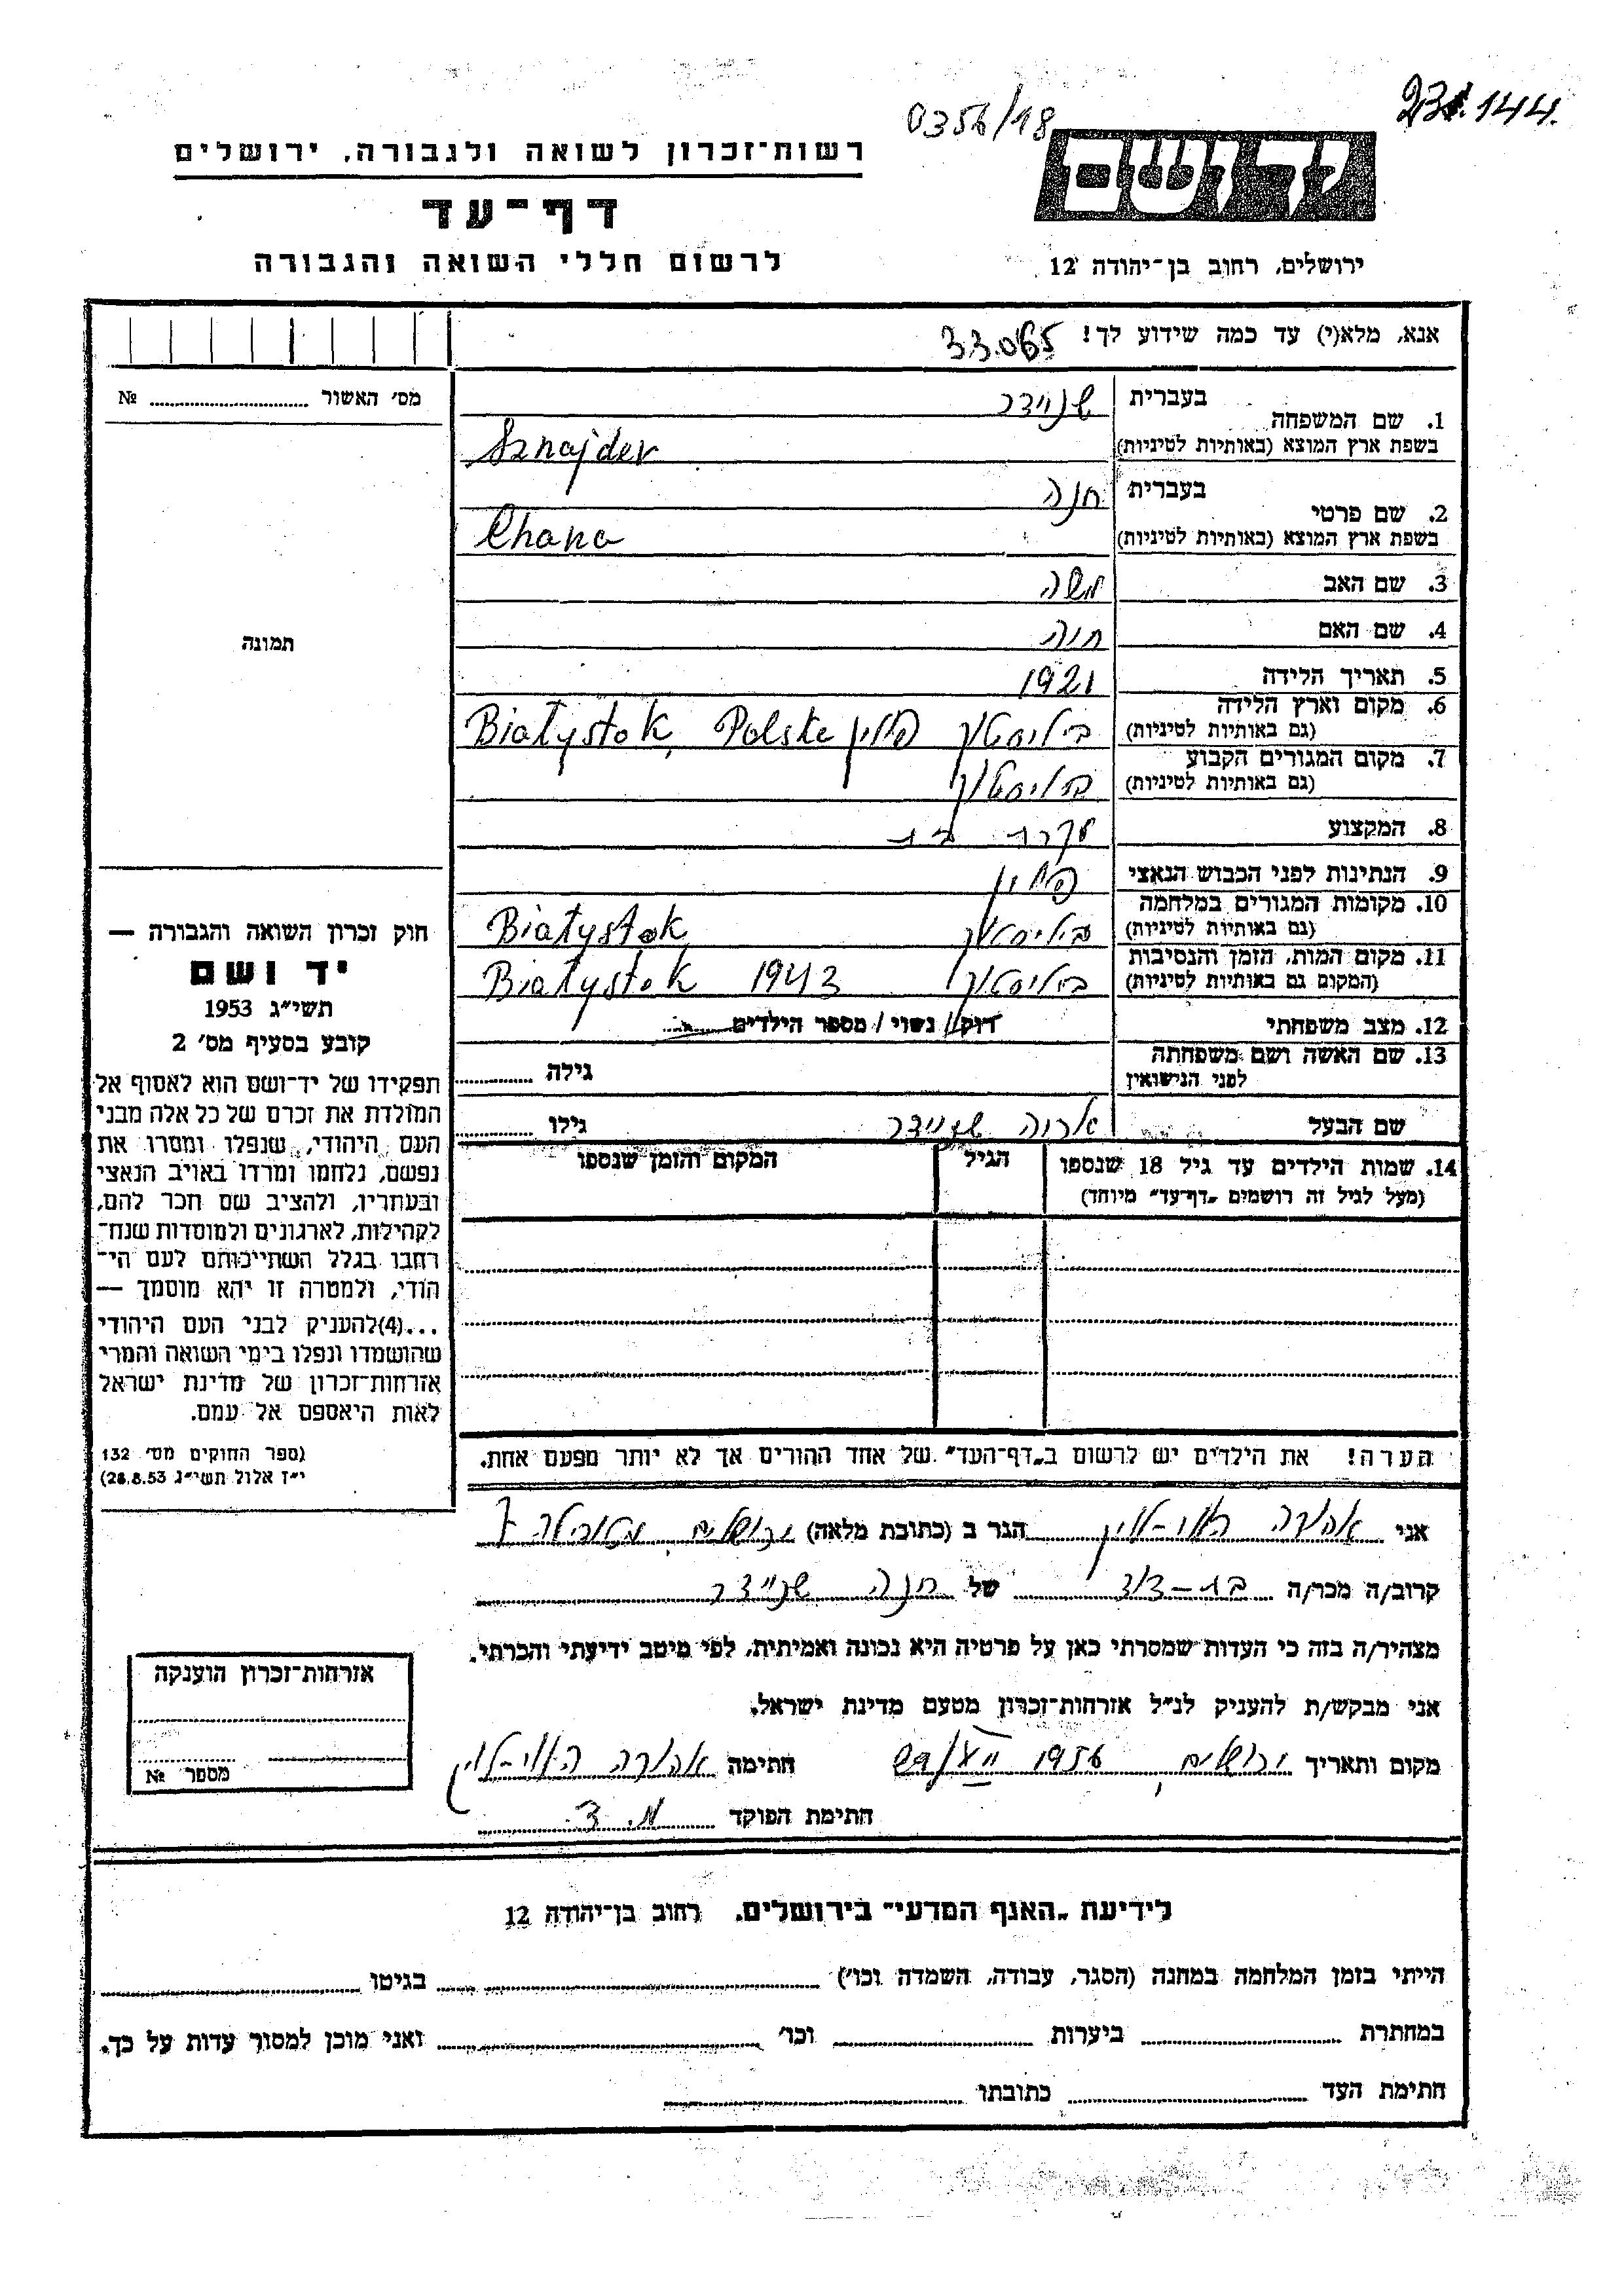 231.144.
0356/18
ידושם
רשות־זכרון לשואה ולגבורה, ירושלים
דף־עד
לרשום חללי השואה והגבורה
ירושלים, רחוב בן־יהודה 12
אנא, מלא(י) עד כמה שידוע לך! 33.065
מס' האשור ........ №
1. שם המשפחה בעברית שניידר
בשפת ארץ המוצא (באותיות לטיניות) Sznajder
2. שם פרטי בעברית חנה
בשפת ארץ המוצא (באותיות לטיניות) Chana
3. שם האב משה
4. שם האם חוה
תמונה
5. תאריך הלידה 1921
6. מקום וארץ הלידה (גם באותיות לטיניות) ביליסטוק פולין Białystok, Polske
7. מקום המגורים הקבוע (גם באותיות לטיניות) ביליסטוק
8. המקצוע עקרת בית
9. הנתינות לפני הכבוש הנאצי פולין
10. מקומות המגורים במלחמה (גם באותיות לטיניות) ביליסטוק Białystok
11. מקום המות, הזמן והנסיבות (המקום גם באותיות לטיניות) ביליסטוק 1943 Białystok
12. מצב משפחתי רווק/ נשוי/ מספר הילדים
13. שם האשה ושם משפחתה לפני הנישואין גילה
שם הבעל אריה שניידר גילו
14. שמות הילדים עד גיל 18 שנספו הגיל המקום והזמן שנספו
(מעל לגיל זה רושמים "דף־עד" מיוחד)
חוק זכרון השואה והגבורה —
יד ושם
תשי"ג 1953
קובע בסעיף מס' 2
תפקידו של יד־ושם הוא לאסוף אל
המולדת את זכרם של כל אלה מבני
העם היהודי, שנפלו ומסרו את
נפשם, נלחמו ומרדו באויב הנאצי
ובעוזריו, ולהציב שם וזכר להם,
לקהילות, לארגונים ולמוסדות שנח־
רבו בגלל השתייכותם לעם הי־
הודי, ולמטרה זו יהא מוסמך —
...(4)להעניק לבני העם היהודי
שהושמדו ונפלו בימי השואה והמרי
אזרחות־זכרון של מדינת ישראל
לאות היאספם אל עמם.
(ספר החוקים מס' 132
י"ז אלול תשי"ג 28.8.53)
הערה! את הילדים יש לרשום ב"דף־העד" של אחד ההורים אך לא יותר מפעם אחת.
אני הגר ב (כתובת מלאה) ירושלים 7
קרוב/ה מכר/ה בת-דוד של חנה שניידר
מצהיר/ה בזה כי העדות שמסרתי כאן על פרטיה היא נכונה ואמיתית, לפי מיטב ידיעתי והכרתי.
אני מבקש/ת להעניק לנ"ל אזרחות־זכרון מטעם מדינת ישראל.
מקום ותאריך ירושלים, 1956 חתימה
חתימת הפוקד מ. ד.
אזרחות־זכרון הוענקה
מספר №
לידיעת "האגף המדעי" בירושלים, רחוב בן־יהודה 12
הייתי בזמן המלחמה במחנה (הסגר, עבודה, השמדה וכו') בגיטו
במחתרת ביערות וכו' ואני מוכן למסור עדות על כך.
חתימת העד כתובתו